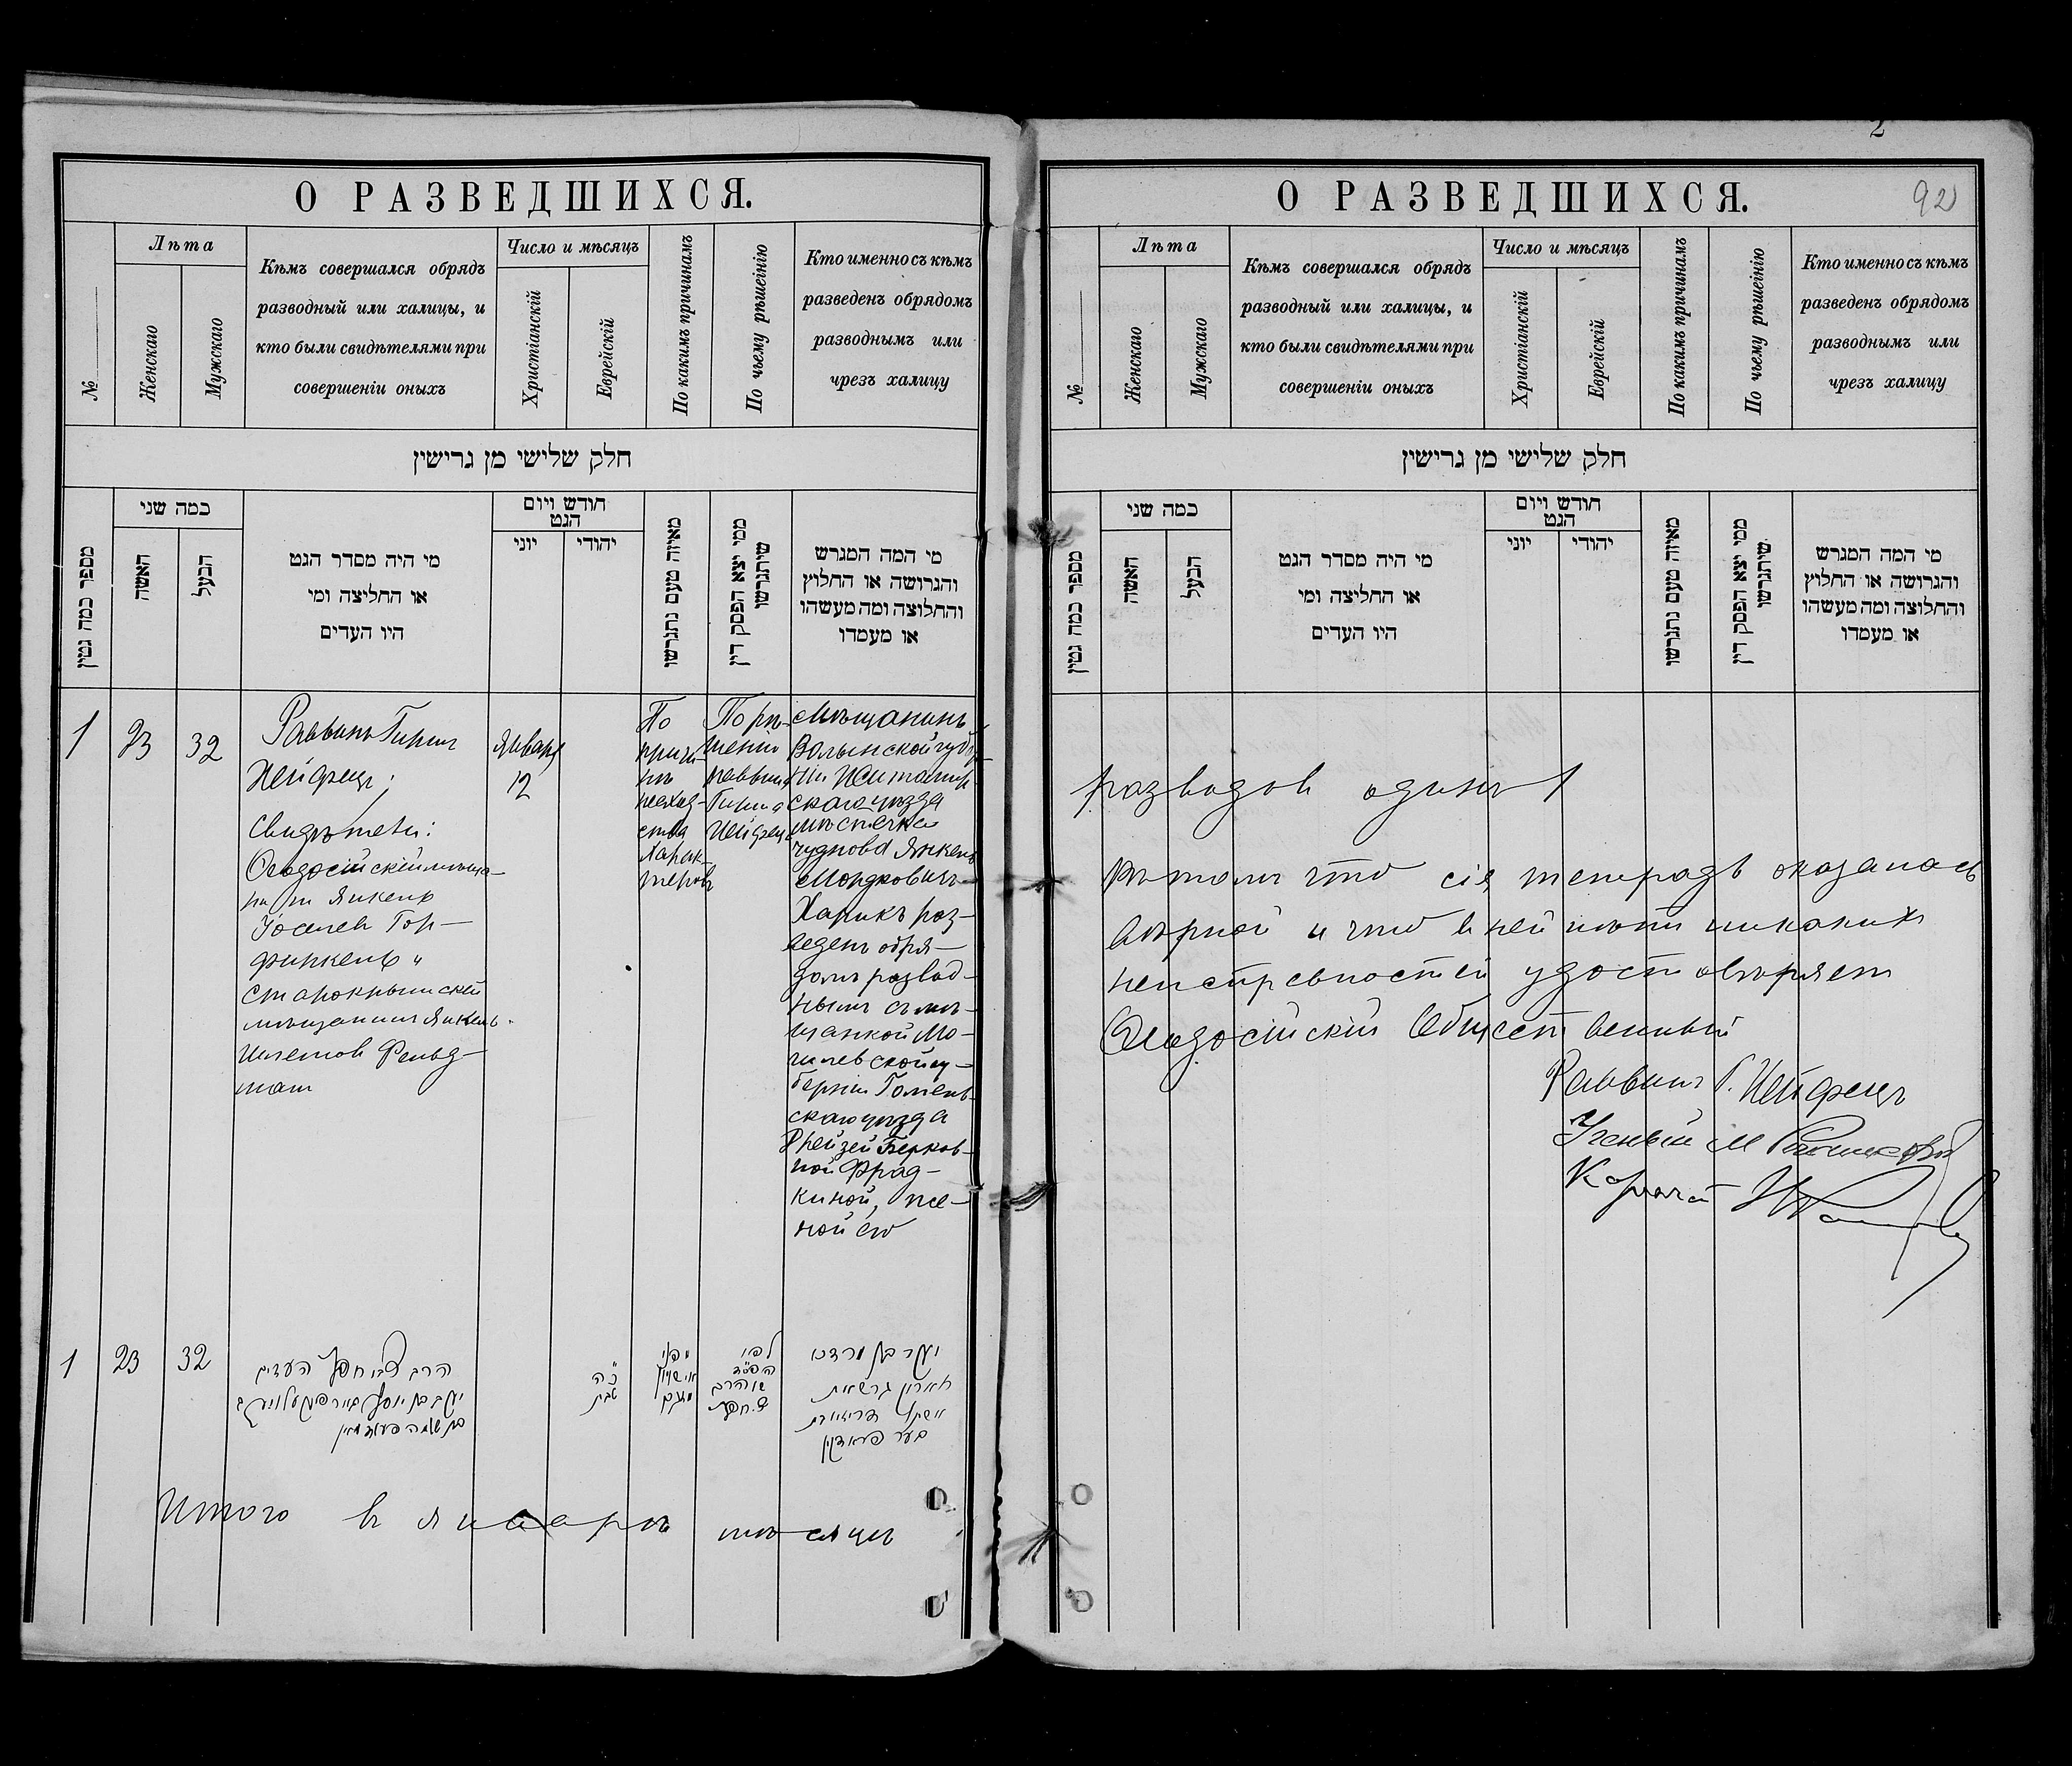 О РАЗВЕДШИХСЯ.
№
Лѣта
Женскаго
Мужскаго
Кѣмъ совершался обрядъ
разводный или халицы, и
кто были свидѣтелями при
совершеніи оныхъ
Число и мѣсяцъ
Христіанскій
Еврейскій
По какимъ причинамъ
По чьему рѣшенію
Кто именно съ кѣмъ
разведенъ обрядомъ
разводнымъ или
чрезъ халицу
חלק שלישי מן גרישין
מספר כמה גטין
כמה שני
האשה
הבעל
מי היה מסדר הגט
או החליצה ומי
היו העדים
חודש ויום
הגט
יוני
יהודי
מאיזה טעם נתגרשו
ממי יצא הפסק דין
שיתגרשו
מי המה המגרש
והגרושה או החלוץ
והחלוצה ומה מעשהו
או מעמדו
1
23
32
Раввинъ Гирш
Хейфецъ;
Свидѣтели:
Ѳеодосійскій мѣща-
нин Янкель
Іоселев Гор-
финкель и
старокрымский
мѣщанинъ Янкель
Шлемов Фельд-
ман
Января
12
По
причи-
нѣ
несход-
ства
харак-
теровъ
По рѣ-
шенію
раввина
Гирша
Хейфеца
Мѣщанинъ
Волынской губер-
ніи Житомир
скаго уѣзда
мѣстечка
Чуднова Янкель
Мордковичъ
Харикъ раз-
веденъ обря-
домъ развод-
нымъ съ мѣ-
щанкой Мо-
гилевской гу-
берніи Гомель-
скаго уѣзда
Фрейзей Берков-
ной Фрад-
киной, же-
ной его
1
23
32
הרב צבי חפץ העדים
יעקב בן יוסף
בן שלמה פעלדמאן
כ״ה
טבת
מפני
לפי
הפס״ד
של הרב
צ. חפץ
יעקב בן מרדכי
חאריק גרש את
אשתו פריזא בת
בער פראדקין
Итого в январѣ мѣсяцѣ
2
92
О РАЗВЕДШИХСЯ.
№
Лѣта
Женскаго
Мужскаго
Кѣмъ совершался обрядъ
разводный или халицы, и
кто были свидѣтелями при
совершеніи оныхъ
Число и мѣсяцъ
Христіанскій
Еврейскій
По какимъ причинамъ
По чьему рѣшенію
Кто именно съ кѣмъ
разведенъ обрядомъ
разводнымъ или
чрезъ халицу
חלק שלישי מן גרישין
מספר כמה גטין
כמה שני
האשה
הבעל
מי היה מסדר הגט
או החליצה ומי
היו העדים
חודש ויום
הגט
יוני
יהודי
מאיזה טעם נתגרשו
ממי יצא הפסק דין
שיתגרשו
מי המה המגרש
והגרושה או החלוץ
והחלוצה ומה מעשהו
או מעמדו
разводов одинъ 1
Въ томъ что сія тетрадь оказалась
вѣрной и что в ней нѣтъ никаких
неисправностей удостовѣряет
Ѳеодосійскій Общественный
Раввинъ Г. Хейфецъ
Ученый М